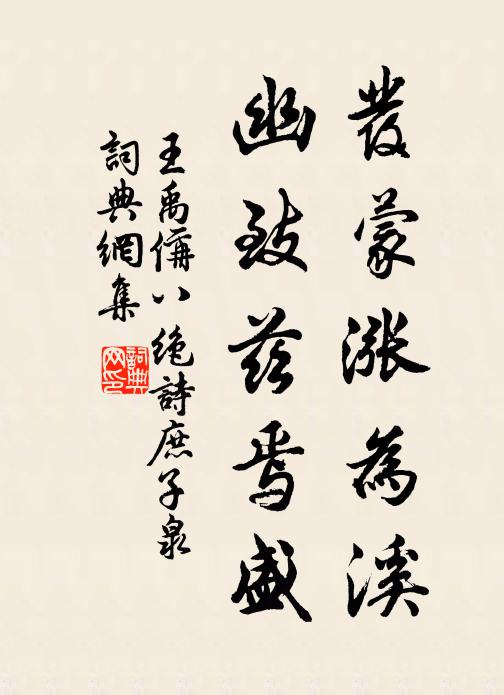 發蒙漲為溪
幽致茲焉盛
王禹偁八絶詩庶子泉
詞典網集
詞典网印